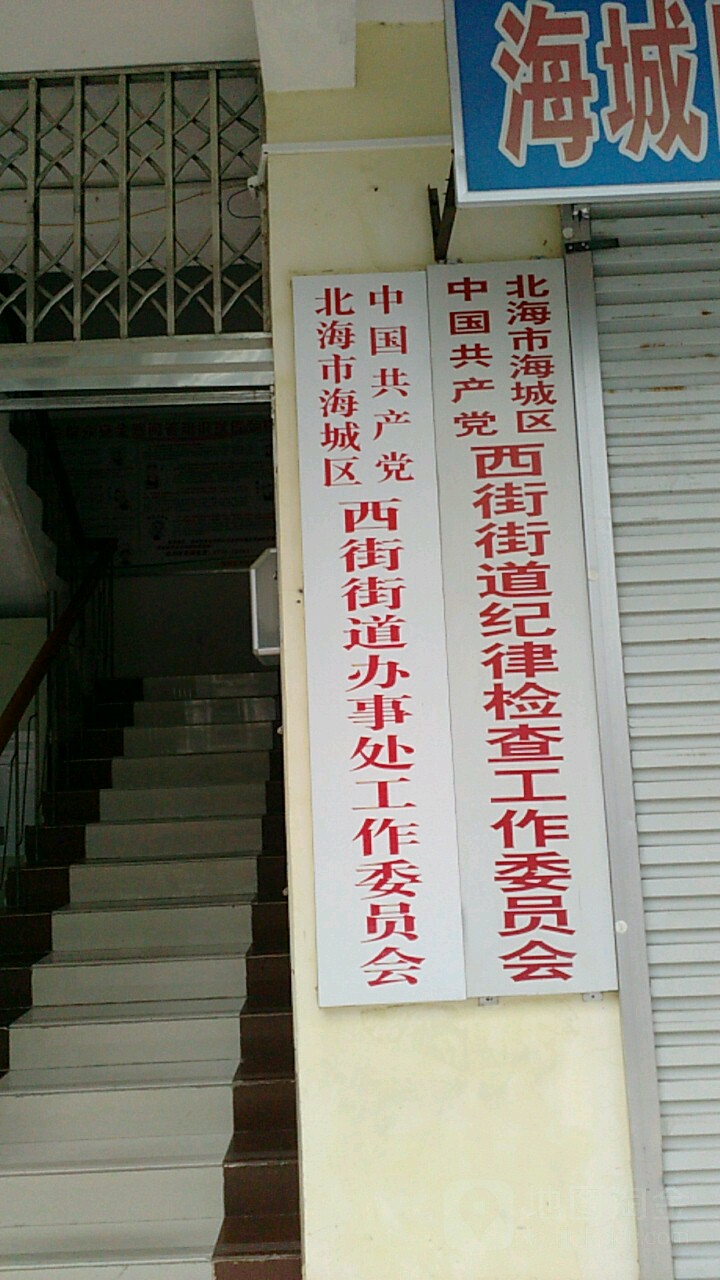 海城
中国共产党
北海市海城区
西街街道办事处工作委员会
中国共产党
北海市海城区
西街街道纪律检查工作委员会